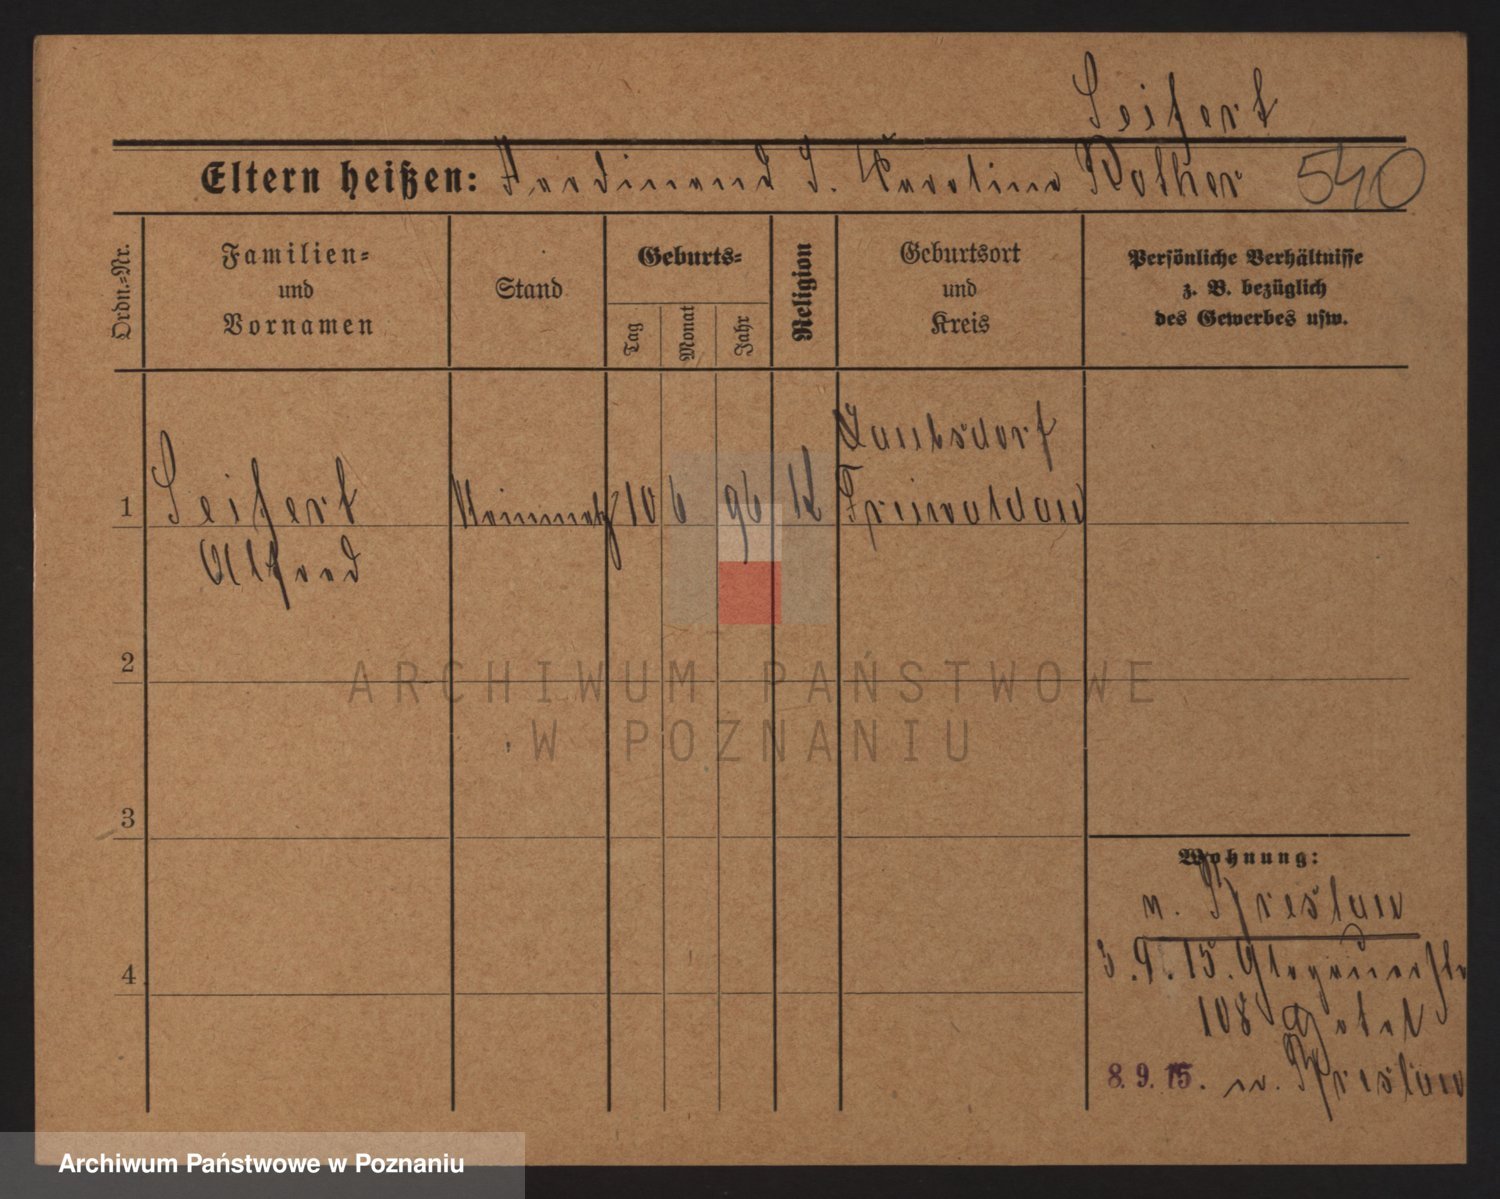 Seifert
Eltern heißen: Ferdinand S. Karoline Rother 540
Ordn.-Nr.
Familien-
und
Vornamen
Stand
Geburts-
Tag
Monat
Jahr
Religion
Geburtsort
und
Kreis
Persönliche Verhältnisse
z. B. bezüglich
des Gewerbes usw.
1
Seifert
Alfred
10 6 96 K
Freiwaldau
2
ARCHIWUM PAŃSTWOWE
W POZNANIU
3
4
Wohnung:
n. Breslau
3.9.15. Glogauerstr
108 Hotel
8.9.15. n. Breslau
Archiwum Państwowe w Poznaniu